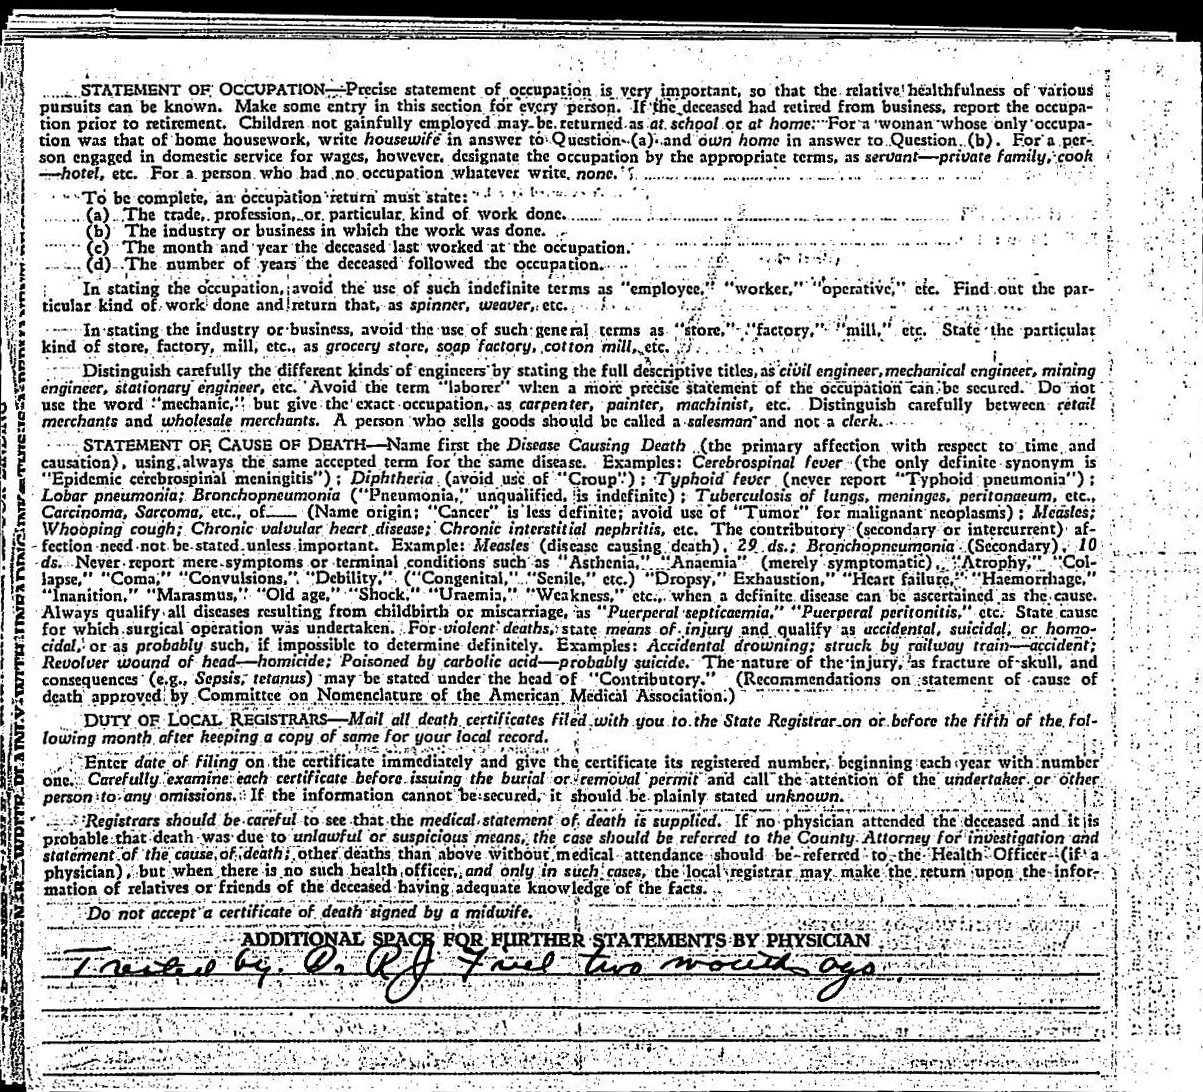 STATEMENT OF OCCUPATION—Precise statement of occupation is very important, so that the relative healthfulness of various
pursuits can be known. Make some entry in this section for every person. If the deceased had retired from business, report the occupa-
tion prior to retirement. Children not gainfully employed may be returned as at school or at home. For a woman whose only occupa-
tion was that of home housework, write housewife in answer to Question (a) and own home in answer to Question (b). For a per-
son engaged in domestic service for wages, however, designate the occupation by the appropriate terms, as servant—private family, cook
—hotel, etc. For a person who had no occupation whatever write none.
To be complete, an occupation return must state:
(a) The trade, profession, or particular kind of work done.
(b) The industry or business in which the work was done.
(c) The month and year the deceased last worked at the occupation.
(d) The number of years the deceased followed the occupation.
In stating the occupation, avoid the use of such indefinite terms as "employee," "worker," "operative," etc. Find out the par-
ticular kind of work done and return that, as spinner, weaver, etc.
In stating the industry or business, avoid the use of such general terms as "store," "factory," "mill," etc. State the particular
kind of store, factory, mill, etc., as grocery store, soap factory, cotton mill, etc.
Distinguish carefully the different kinds of engineers by stating the full descriptive titles, as civil engineer, mechanical engineer, mining
engineer, stationary engineer, etc. Avoid the term "laborer" when a more precise statement of the occupation can be secured. Do not
use the word "mechanic," but give the exact occupation, as carpenter, painter, machinist, etc. Distinguish carefully between retail
merchants and wholesale merchants. A person who sells goods should be called a salesman and not a clerk.
STATEMENT OF CAUSE OF DEATH—Name first the Disease Causing Death (the primary affection with respect to time and
causation), using always the same accepted term for the same disease. Examples: Cerebrospinal fever (the only definite synonym is
"Epidemic cerebrospinal meningitis"); Diphtheria (avoid use of "Croup"); Typhoid fever (never report "Typhoid pneumonia");
Lobar pneumonia; Bronchopneumonia ("Pneumonia," unqualified, is indefinite); Tuberculosis of lungs, meninges, peritonaeum, etc.,
Carcinoma, Sarcoma, etc., of___ (Name origin; "Cancer" is less definite; avoid use of "Tumor" for malignant neoplasms); Measles;
Whooping cough; Chronic valvular heart disease; Chronic interstitial nephritis, etc. The contributory (secondary or intercurrent) af-
fection need not be stated unless important. Example: Measles (disease causing death), 29 ds.; Bronchopneumonia (Secondary), 10
ds. Never report mere symptoms or terminal conditions such as "Asthenia," "Anaemia" (merely symptomatic), "Atrophy," "Col-
lapse," "Coma," "Convulsions," "Debility," ("Congenital," "Senile," etc.) "Dropsy," Exhaustion," "Heart failure," "Haemorrhage,"
"Inanition," "Marasmus," "Old age," "Shock," "Uraemia," "Weakness," etc., when a definite disease can be ascertained as the cause.
Always qualify all diseases resulting from childbirth or miscarriage, as "Puerperal septicaemia," "Puerperal peritonitis," etc. State cause
for which surgical operation was undertaken. For violent deaths, state means of injury and qualify as accidental, suicidal, or homo-
cidal, or as probably such, if impossible to determine definitely. Examples: Accidental drowning; struck by railway train—accident;
Revolver wound of head—homicide; Poisoned by carbolic acid—probably suicide. The nature of the injury, as fracture of skull, and
consequences (e.g., Sepsis, tetanus) may be stated under the head of "Contributory." (Recommendations on statement of cause of
death approved by Committee on Nomenclature of the American Medical Association.)
DUTY OF LOCAL REGISTRARS—Mail all death certificates filed with you to the State Registrar on or before the fifth of the fol-
lowing month after keeping a copy of same for your local record.
Enter date of filing on the certificate immediately and give the certificate its registered number, beginning each year with number
one. Carefully examine each certificate before issuing the burial or removal permit and call the attention of the undertaker or other
person to any omissions. If the information cannot be secured, it should be plainly stated unknown.
Registrars should be careful to see that the medical statement of death is supplied. If no physician attended the deceased and it is
probable that death was due to unlawful or suspicious means, the case should be referred to the County Attorney for investigation and
statement of the cause of death; other deaths than above without medical attendance should be referred to the Health Officer (if a
physician), but when there is no such health officer, and only in such cases, the local registrar may make the return upon the infor-
mation of relatives or friends of the deceased having adequate knowledge of the facts.
Do not accept a certificate of death signed by a midwife.
ADDITIONAL SPACE FOR FURTHER STATEMENTS BY PHYSICIAN
Treated by. R J two months ago.